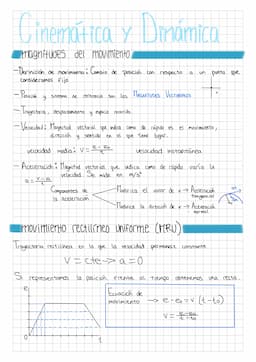 Cinemática y Dinámica
magnitudes del movimiento
— Definición de movimiento: Cambio de posición con respecto a un punto que
consideramos fijo.
— Posición y sistema de referencia son las Magnitudes Vectoriales
— Trayectoria, desplazamiento y espacio recorrido.
— Velocidad: Magnitud vectorial que indica como de rápido es el movimiento,
dirección y sentido en el que tiene lugar.
velocidad media: V = e-e₀/t velocidad instantánea
— Aceleración: Magnitud vectorial que indica como de rápido varía la
velocidad. Se mide en m/s²
a = v-v₀/t
Componentes de la aceleración
Modifica el valor de v → Aceleración tangencial
Modifica la dirección de v → Aceleración normal
movimiento rectilíneo uniforme (MRU)
Trayectoria rectilínea en la que la velocidad permanece constante
V = cte → a = 0
Si representamos la posición frente al tiempo obtenemos una recta.
Ecuación de
movimiento → e - e₀ = v (t - t₀)
V = e-e₀/t-t₀